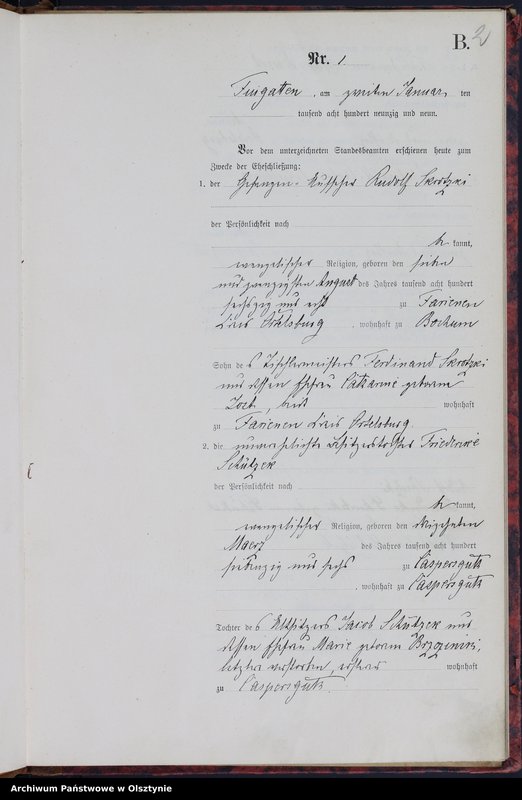 B. 2
Nr. 1
Fingatten, am zweiten Januar, ten
tausend acht hundert neunzig und neun.
Vor dem unterzeichneten Standesbeamten erschienen heute zum
Zwecke der Eheschließung:
1. der Kutscher Rudolf Skrotzki
der Persönlichkeit nach
be kannt,
evangelischer Religion, geboren den sieben
und zwanzigsten August des Jahres tausend acht hundert
sechszig und acht zu Farienen
Kreis Ortelsburg, wohnhaft zu Bochum
Sohn des Tischlermeisters Ferdinand Skrotzki
und dessen Ehefrau Catharine geborene
beide wohnhaft
zu Farienen Kreis Ortelsburg.
2. die unverehelichte Besitzertochter Friederike
Schützek
der Persönlichkeit nach
be kannt,
evangelischer Religion, geboren den dreizehnten
Maerz des Jahres tausend acht hundert
siebenzig und sechs zu Caspersguth
, wohnhaft zu Caspersguth
Tochter des Altsitzers Jacob Schützek und
dessen Ehefrau Marie geborene
letztere verstorben, ersterer wohnhaft
zu Caspersguth.
Archiwum Państwowe w Olsztynie